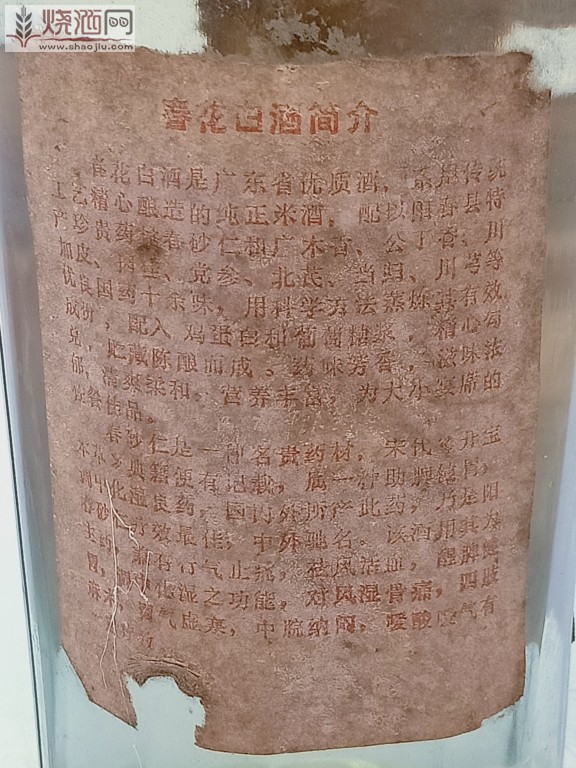 烧酒网
www.shaojiu.com
春花白酒简介
春花白酒是广东省优质酒,系按传统
工艺精心酿造的纯正米酒,配以阳春县特
产珍贵药材春砂仁和广木香、公丁香、川
加皮、 党参、北芪、当归、川芎等
优良国药十余味,用科学方法蒸炼其有效
成份,配入鸡蛋白和葡萄糖浆,精心勾
兑,贮藏陈酿而成。药味芳香,滋味浓
郁,清爽柔和,营养丰富,为大小宴席的
佐餐佳品。
春砂仁是一种名贵药材,宋代《开宝
本草》典籍便有记载,属一种助脾健胃,
调中化湿良药,国内外所产此药,乃是阳
春砂仁疗效最佳,中外驰名。该酒用其为
主药,兼有行气止痛,祛风活血,醒脾健
胃,调中化湿之功能,对风湿骨痛,四肢
麻木,胃气虚寒,中脘纳闷,嗳酸 气有